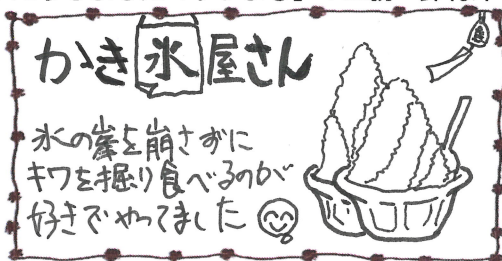 かき氷屋さん
氷の峯を崩さずに
キワを掘り食べるのが
好きでやってました